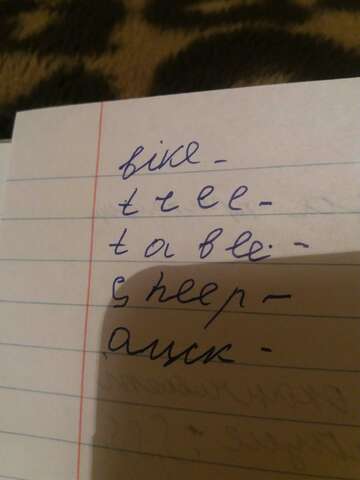 bike -
tree -
table -
sheep -
duck -